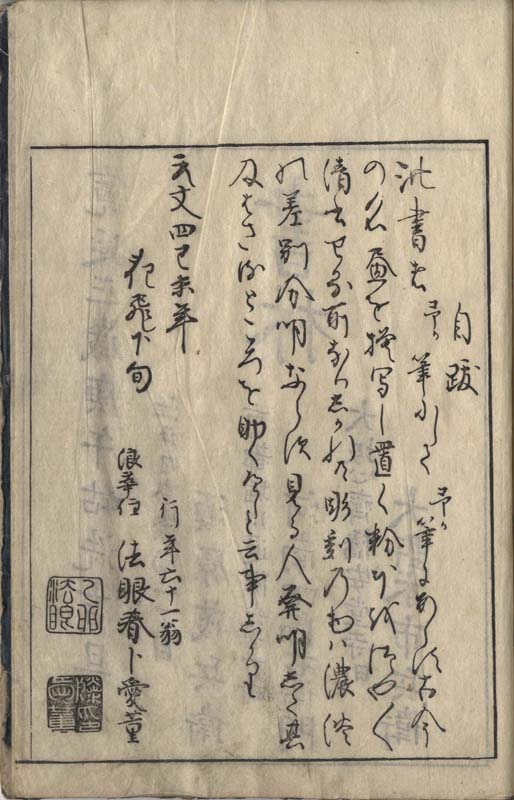 自跋
此書者 予が筆にして 予が筆にあらず古今
の名画を模写し置く粉本
清書せる所なりしかれ共彫刻のものハ濃淡
の差別分明ならず見る人発明して其
及ばざるところを助くべしと云事しかり
元文四己未年
下旬
行年六十一翁
浪華住 法眼春卜愛董